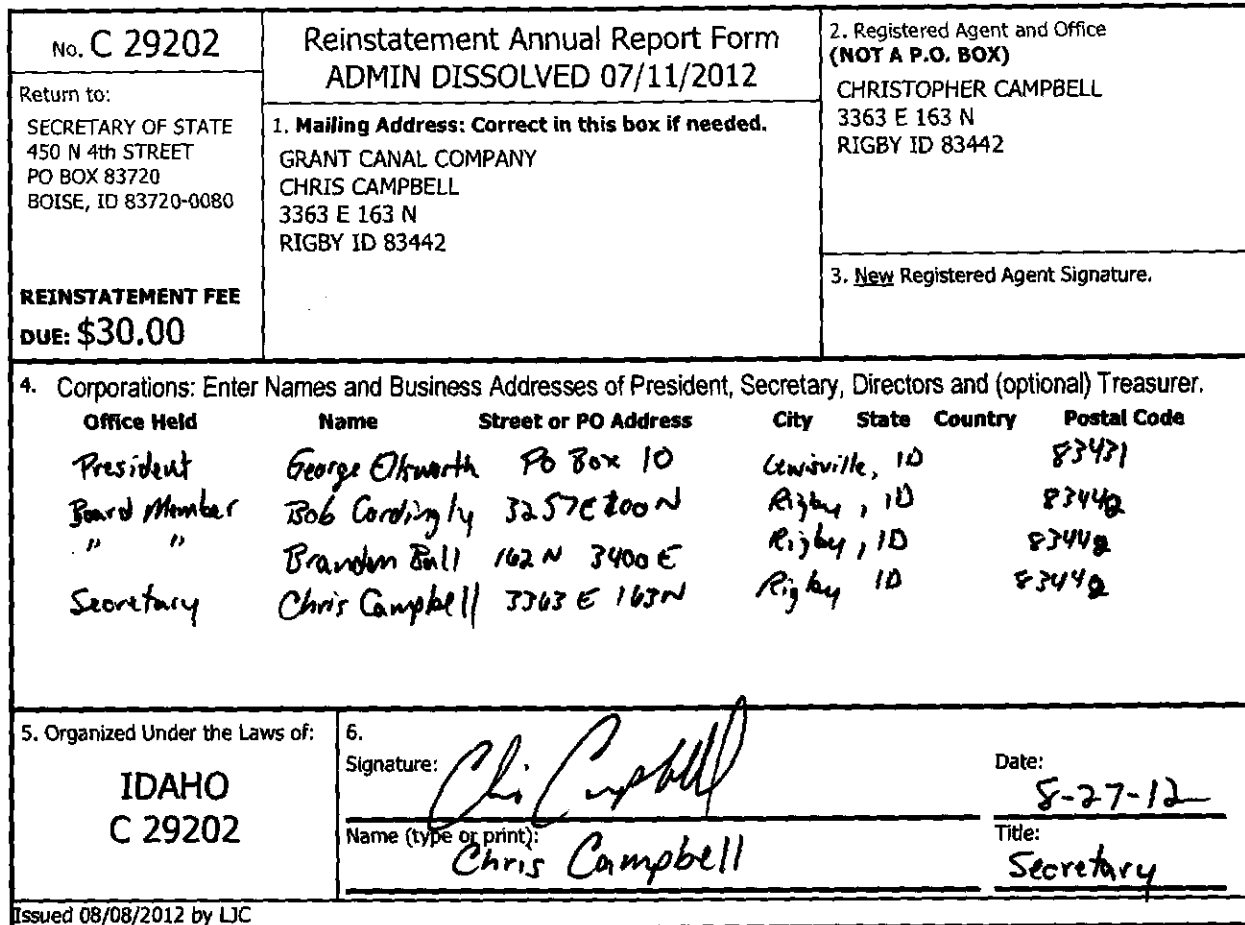 No. C 29202
Return to:
SECRETARY OF STATE
450 N 4th STREET
PO BOX 83720
BOISE, ID 83720-0080
REINSTATEMENT FEE
DUE: $30.00
Reinstatement Annual Report Form
ADMIN DISSOLVED 07/11/2012
1. Mailing Address: Correct in this box if needed.
GRANT CANAL COMPANY
CHRIS CAMPBELL
3363 E 163 N
RIGBY ID 83442
2. Registered Agent and Office
(NOT A P.O. BOX)
CHRISTOPHER CAMPBELL
3363 E 163 N
RIGBY ID 83442
3. New Registered Agent Signature.
4. Corporations: Enter Names and Business Addresses of President, Secretary, Directors and (optional) Treasurer.
Office Held Name Street or PO Address City State Country Postal Code
President George PO Box 10 Lewisville, ID 83431
Board Member Bob Cordingly 3257 E 200 N Rigby, ID 83442
" " Brandon Ball 162 N 3400 E Rigby, ID 83442
Secretary Chris Campbell 3363 E 163 N Rigby ID 83442
5. Organized Under the Laws of:
IDAHO
C 29202
6.
Signature: Chris Campbell
Date: 8-27-12
Name (type or print): Chris Campbell
Title: Secretary
Issued 08/08/2012 by LJC